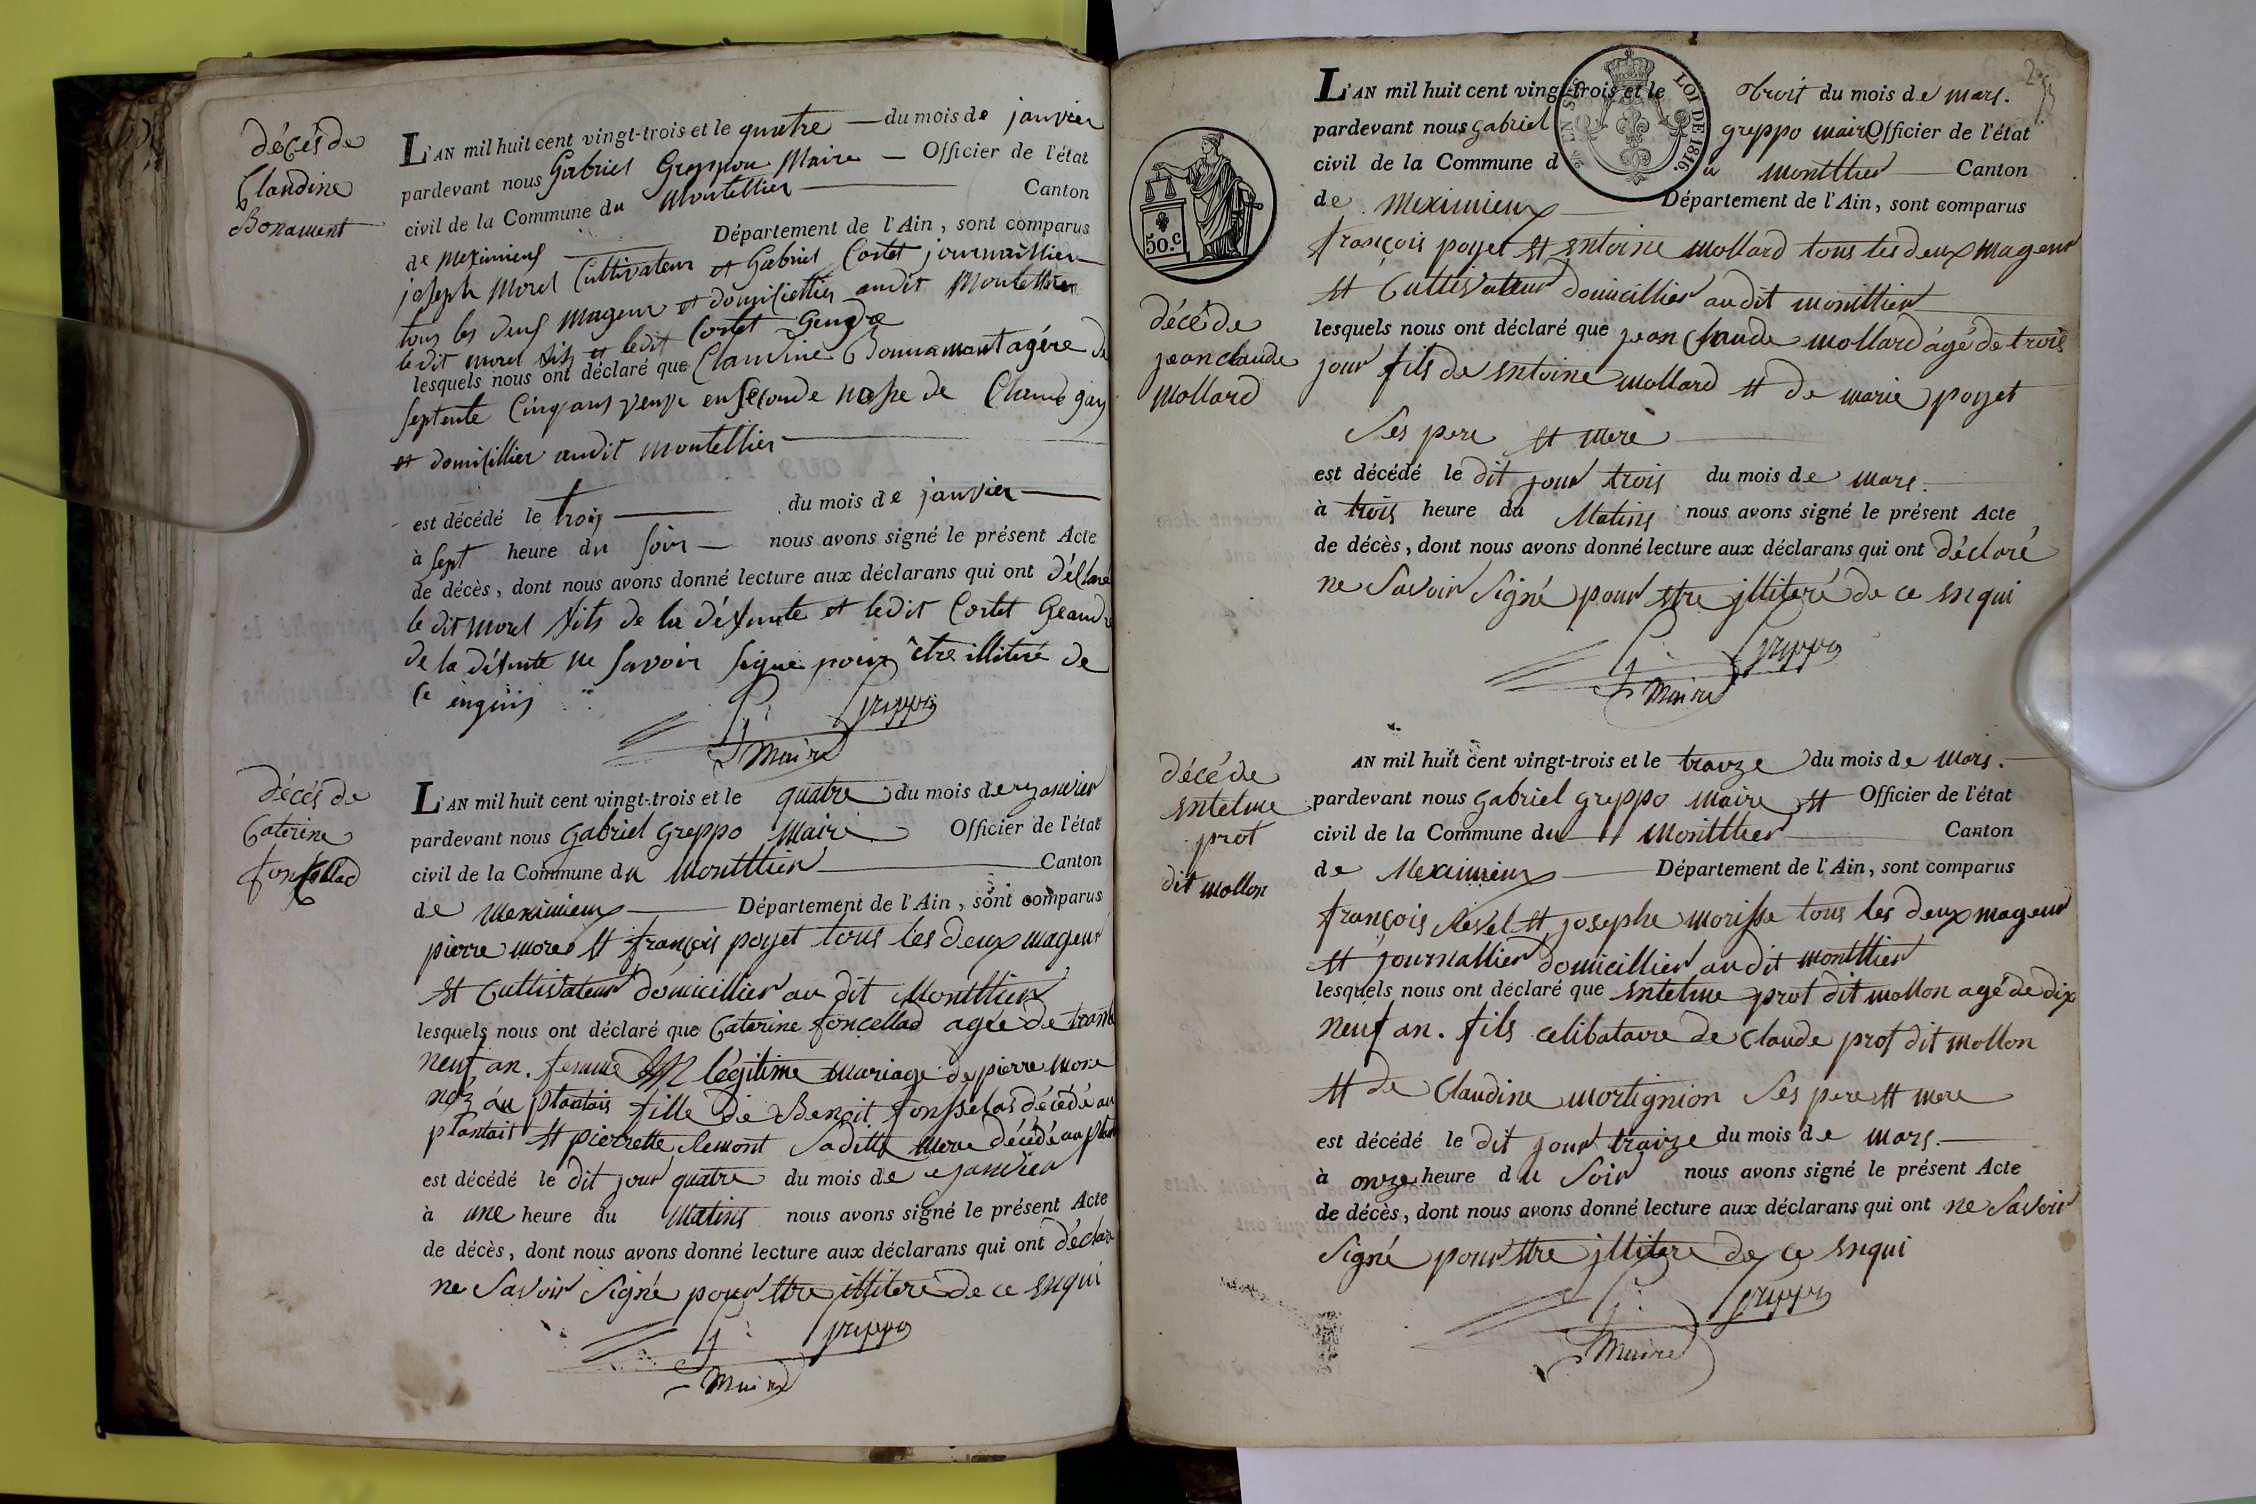 décés de
Claudine
Bonament
L'AN mil huit cent vingt-trois et le quatre du mois de janvier
pardevant nous Gabriel Greppou Maire Officier de l'état
civil de la Commune du Montellier Canton
de meximieux Département de l'Ain, sont comparus
joseph Morel Cultivateur et Gabriel Cortet journaillier
tous les deux mageur et domicillier audit Montellier
ledit morel fils et ledit Cortet Gendre
lesquels nous ont déclaré que Claudine Bonnamant agére de
septente Cinq ans veuve en seconde nosse de Claude gay
et domicillier audit montellier
est décédé le trois du mois de janvier
à sept heure du soir nous avons signé le présent Acte
de décès, dont nous avons donné lecture aux déclarans qui ont déclaré
le dit morel fils de la défunte et ledit Cortet Geandre
de la défunte ne savoir signé pour être illiteré de
ce enquis
G. Greppo
Maire
décés de
Caterine
fonsellad
L'AN mil huit cent vingt-trois et le quatre du mois de janvier
pardevant nous gabriel greppo Maire Officier de l'état
civil de la Commune du Monttlier Canton
de meximieux Département de l'Ain, sont comparus
pierre morel et françois poyet tous les deux mageur
et Cultivateur domicillier au dit Monttlier
lesquels nous ont déclaré que Caterine foncellad agée de trante
neuf an. femme légitime mariage de pierre More
néz au plantais fille de Benoit fonsselas décédé au
plantait et pierrette Remont sa ditte mere décédé au plant
est décédé le dit jour quatre du mois de janvier
à une heure du matins nous avons signé le présent Acte
de décès, dont nous avons donné lecture aux déclarans qui ont déclaré
ne savoir signé pour etre illiteré de ce enqui
G. greppo
Maire
50.c
LOI DE 1816.
L'AN mil huit cent vingt-trois et le troit du mois de mars.
pardevant nous gabriel greppo maire Officier de l'état
civil de la Commune du montllier Canton
de Meximieux Département de l'Ain, sont comparus
françois poyet et entoine mollard tous les deux mageur
et Cultivateur domicillier au dit montllier
décé de
jean claude
mollard
lesquels nous ont déclaré que jean Claude mollard ágé de trois
jour fils de entoine mollard et de marie poyet
ses pere et mere
est décédé le dit jour trois du mois de mars.
à trois heure du Matins nous avons signé le présent Acte
de décès, dont nous avons donné lecture aux déclarans qui ont déclaré
ne savoir signé pour etre jlliteré de ce enqui
G. Greppo
Maire
décé de
entelme
prot
dit mollon
AN mil huit cent vingt-trois et le traize du mois de mars.
pardevant nous gabriel greppo maire et Officier de l'état
civil de la Commune du Monttlier Canton
de Meximieux Département de l'Ain, sont comparus
françois Revel et josephe morisse tous les deux mageur
et journallier domicillier au dit monttlier
lesquels nous ont déclaré que entelme prot dit mollon agé de dix
neuf an. fils celibataire de Claude prot dit mollon
et de Claudine mortignion ses pere et mere
est décédé le dit jour traize du mois de mars.
à onze heure du soir nous avons signé le présent Acte
de décès, dont nous avons donné lecture aux déclarans qui ont ne savoir
signé pour etre jllitere de ce enqui
G. Greppo
Maire